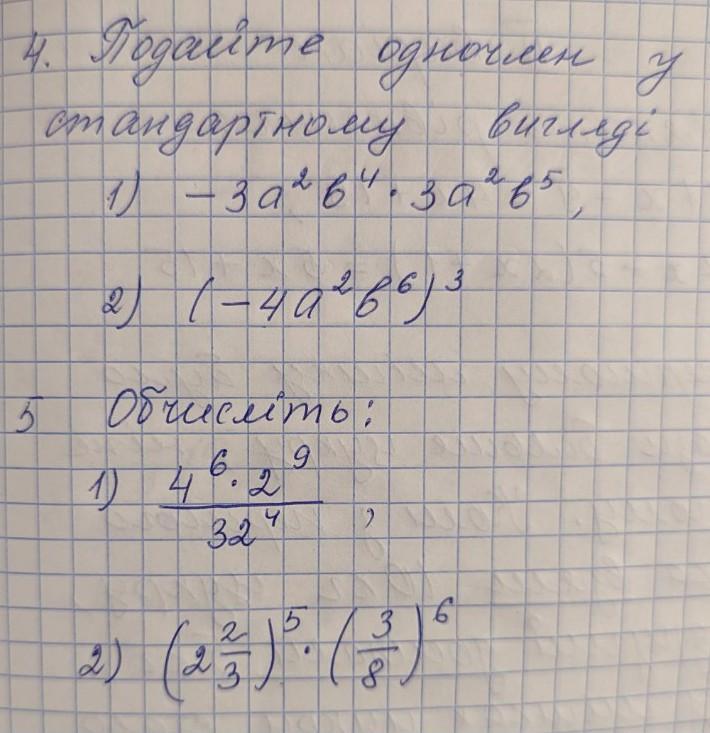 4. Подайте одночлен у
стандартному вигляді
1) −3a²b⁴ · 3a²b⁵,
2) (−4a²b⁶)³
5 Обчисліть:
1) (4⁶ · 2⁹) / 32⁴ ;
2) (2 2/3)⁵ · (3/8)⁶